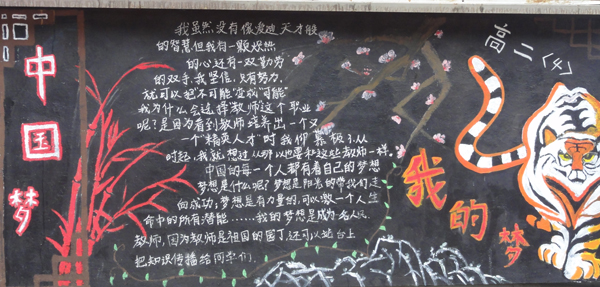 中国梦
我虽然没有像爱迪天才般
的智慧,但我有一颗炽热
的心还有一双勤劳
的双手,我坚信,只有努力,
就可以把"不可能"变成"可能"
我为什么会选择教师这个职业
呢?是因为看到教师培养出一个又
一个"精英人才"时我仰慕极了,从
时起,我就想过从那以也要和这些教师一样。
中国的每一个人都有着自己的梦想
梦想是什么呢?梦想是阳光的带我们走
向成功,梦想是有力量的,可以激一个人生
命中的所有潜能……我的梦想是成为一名人民
教师,因为教师是祖国的园丁,还可以站台上
把知识传播给同学们。
高二(4)
我的梦